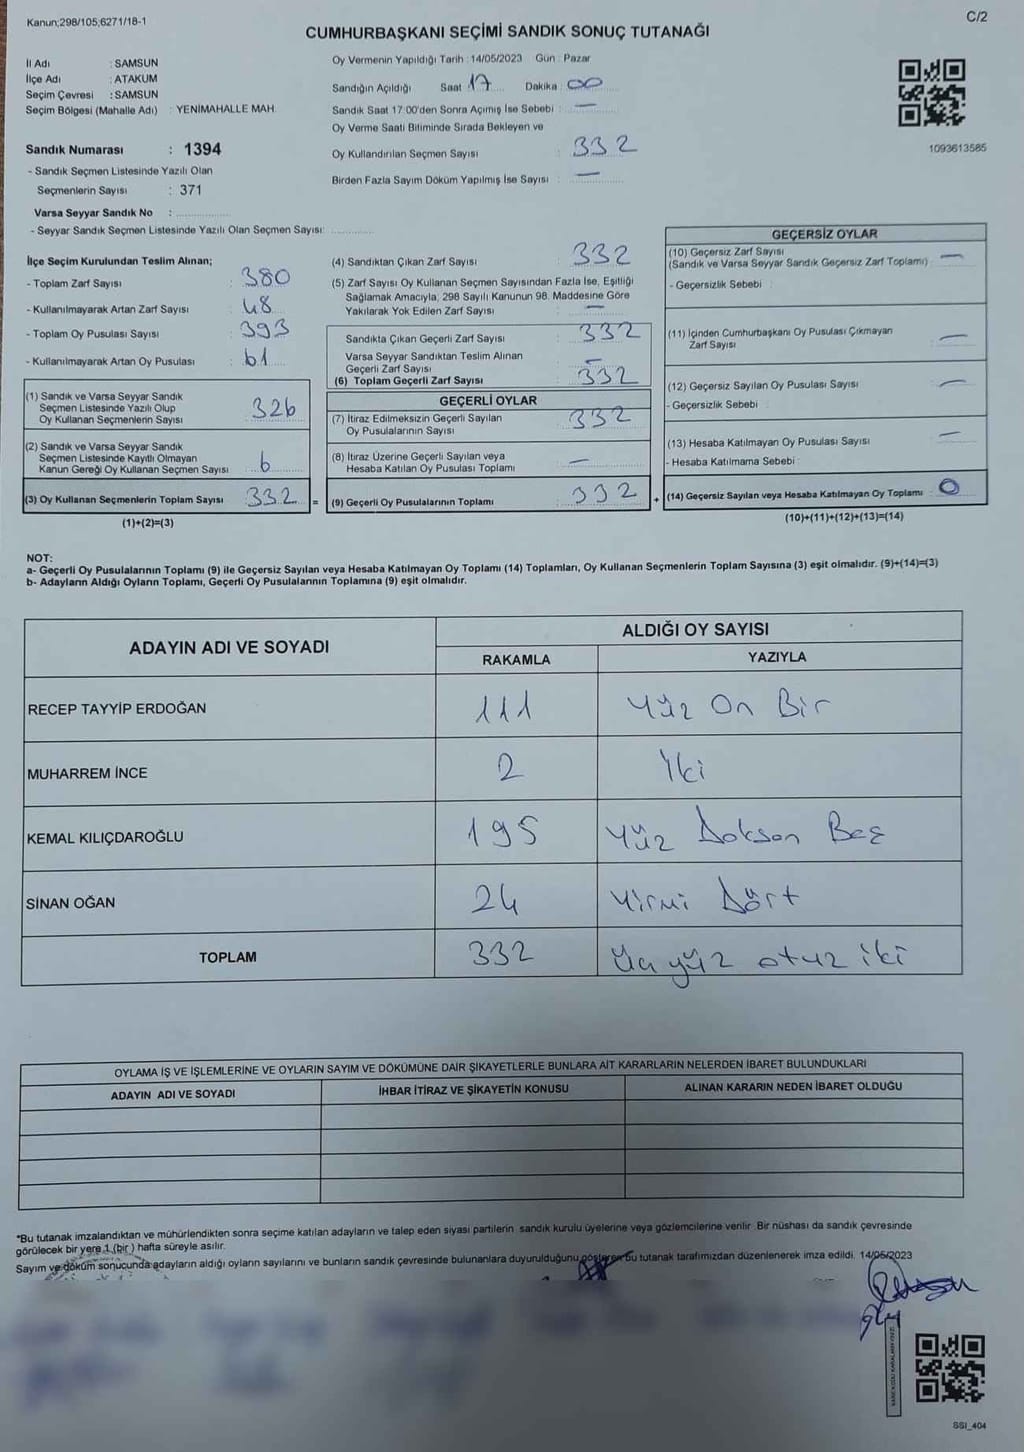 Kanun;298/105;6271/18-1
C/2
CUMHURBAŞKANI SEÇİMİ SANDIK SONUÇ TUTANAĞI
İl Adı : SAMSUN
İlçe Adı : ATAKUM
Seçim Çevresi : SAMSUN
Seçim Bölgesi (Mahalle Adı) : YENİMAHALLE MAH.
Sandık Numarası : 1394
- Sandık Seçmen Listesinde Yazılı Olan
Seçmenlerin Sayısı : 371
Varsa Seyyar Sandık No :
- Seyyar Sandık Seçmen Listesinde Yazılı Olan Seçmen Sayısı:
Oy Vermenin Yapıldığı Tarih : 14/05/2023 Gün : Pazar
Sandığın Açıldığı Saat 17 Dakika : 00
Sandık Saat 17:00'den Sonra Açımış İse Sebebi : —
Oy Verme Saati Bitiminde Sırada Bekleyen ve
Oy Kullandırılan Seçmen Sayısı : 332
Birden Fazla Sayım Döküm Yapılmış İse Sayısı : —
1093613585
İlçe Seçim Kurulundan Teslim Alınan;
- Toplam Zarf Sayısı : 380
- Kullanılmayarak Artan Zarf Sayısı : 48
- Toplam Oy Pusulası Sayısı : 393
- Kullanılmayarak Artan Oy Pusulası : 61
(1) Sandık ve Varsa Seyyar Sandık
Seçmen Listesinde Yazılı Olup
Oy Kullanan Seçmenlerin Sayısı 326
(2) Sandık ve Varsa Seyyar Sandık
Seçmen Listesinde Kayıtlı Olmayan
Kanun Gereği Oy Kullanan Seçmen Sayısı 6
(3) Oy Kullanan Seçmenlerin Toplam Sayısı 332 =
(1)+(2)=(3)
(4) Sandıktan Çıkan Zarf Sayısı : 332
(5) Zarf Sayısı Oy Kullanan Seçmen Sayısından Fazla İse, Eşitliği
Sağlamak Amacıyla; 298 Sayılı Kanunun 98. Maddesine Göre
Yakılarak Yok Edilen Zarf Sayısı : —
Sandıkta Çıkan Geçerli Zarf Sayısı : 332
Varsa Seyyar Sandıktan Teslim Alınan
Geçerli Zarf Sayısı : —
(6) Toplam Geçerli Zarf Sayısı : 332
GEÇERLİ OYLAR
(7) İtiraz Edilmeksizin Geçerli Sayılan
Oy Pusulalarının Sayısı 332
(8) İtiraz Üzerine Geçerli Sayılan veya
Hesaba Katılan Oy Pusulası Toplamı —
(9) Geçerli Oy Pusulalarının Toplamı 332 +
GEÇERSİZ OYLAR
(10) Geçersiz Zarf Sayısı
(Sandık ve Varsa Seyyar Sandık Geçersiz Zarf Toplamı) : —
- Geçersizlik Sebebi :
(11) İçinden Cumhurbaşkanı Oy Pusulası Çıkmayan
Zarf Sayısı : —
(12) Geçersiz Sayılan Oy Pusulası Sayısı : —
- Geçersizlik Sebebi :
(13) Hesaba Katılmayan Oy Pusulası Sayısı : —
- Hesaba Katılmama Sebebi :
(14) Geçersiz Sayılan veya Hesaba Katılmayan Oy Toplamı : 0
(10)+(11)+(12)+(13)=(14)
NOT:
a- Geçerli Oy Pusulalarının Toplamı (9) ile Geçersiz Sayılan veya Hesaba Katılmayan Oy Toplamı (14) Toplamları, Oy Kullanan Seçmenlerin Toplam Sayısına (3) eşit olmalıdır. (9)+(14)=(3)
b- Adayların Aldığı Oyların Toplamı, Geçerli Oy Pusulalarının Toplamına (9) eşit olmalıdır.
ADAYIN ADI VE SOYADI ALDIĞI OY SAYISI
RAKAMLA YAZIYLA
RECEP TAYYİP ERDOĞAN 111 Yüz On Bir
MUHARREM İNCE 2 İki
KEMAL KILIÇDAROĞLU 195 Yüz Doksan Beş
SİNAN OĞAN 24 Yirmi Dört
TOPLAM 332 Üç yüz otuz iki
OYLAMA İŞ VE İŞLEMLERİNE VE OYLARIN SAYIM VE DÖKÜMÜNE DAİR ŞİKAYETLERLE BUNLARA AİT KARARLARIN NELERDEN İBARET BULUNDUKLARI
ADAYIN ADI VE SOYADI İHBAR İTİRAZ VE ŞİKAYETİN KONUSU ALINAN KARARIN NEDEN İBARET OLDUĞU
*Bu tutanak imzalandıktan ve mühürlendikten sonra seçime katılan adayların ve talep eden siyasi partilerin sandık kurulu üyelerine veya gözlemcilerine verilir. Bir nüshası da sandık çevresinde
görülecek bir yere 1 (bir) hafta süreyle asılır.
Sayım ve döküm sonucunda adayların aldığı oyların sayılarını ve bunların sandık çevresinde bulunanlara duyurulduğunu gösteren bu tutanak tarafımızdan düzenlenerek imza edildi. 14/05/2023
SSI_404